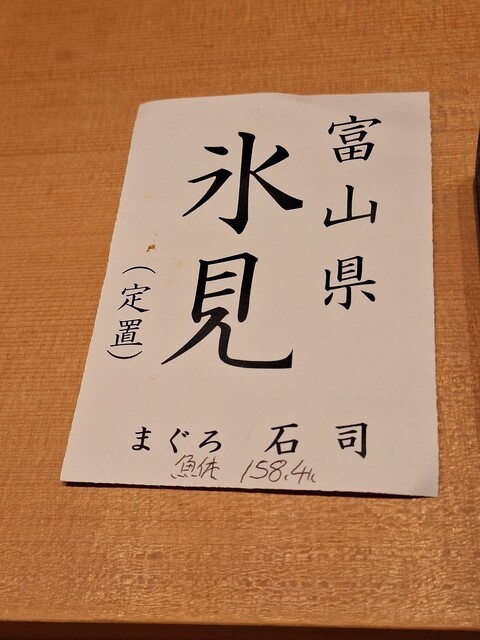 富山県
氷見
（定置）
まぐろ 石司
魚体 158.4k